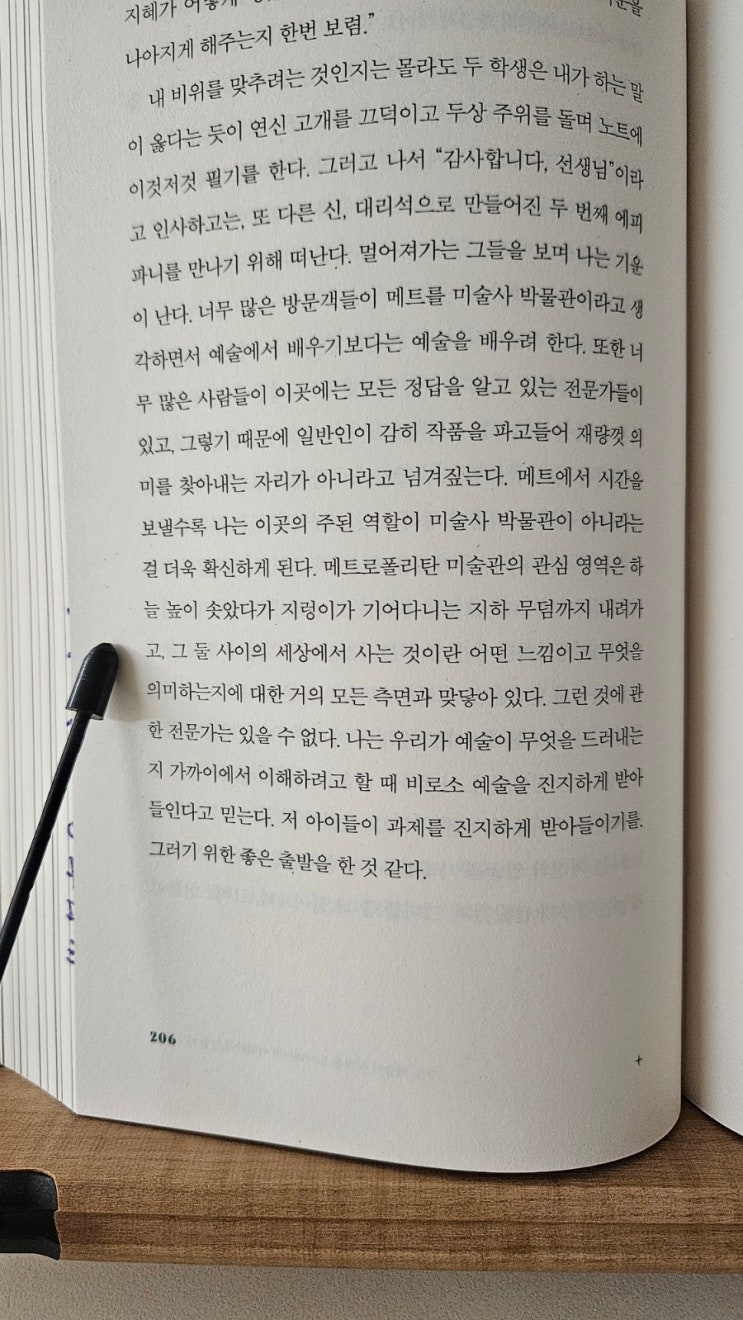 지혜가 어떻게
나아지게 해주는지 한번 보렴.”
내 비위를 맞추려는 것인지는 몰라도 두 학생은 내가 하는 말
이 옳다는 듯이 연신 고개를 끄덕이고 두상 주위를 돌며 노트에
이것저것 필기를 한다. 그러고 나서 “감사합니다, 선생님”이라
고 인사하고는, 또 다른 신, 대리석으로 만들어진 두 번째 에피
파니를 만나기 위해 떠난다. 멀어져가는 그들을 보며 나는 기운
이 난다. 너무 많은 방문객들이 메트를 미술사 박물관이라고 생
각하면서 예술에서 배우기보다는 예술을 배우려 한다. 또한 너
무 많은 사람들이 이곳에는 모든 정답을 알고 있는 전문가들이
있고, 그렇기 때문에 일반인이 감히 작품을 파고들어 재량껏 의
미를 찾아내는 자리가 아니라고 넘겨짚는다. 메트에서 시간을
보낼수록 나는 이곳의 주된 역할이 미술사 박물관이 아니라는
걸 더욱 확신하게 된다. 메트로폴리탄 미술관의 관심 영역은 하
늘 높이 솟았다가 지렁이가 기어다니는 지하 무덤까지 내려가
고, 그 둘 사이의 세상에서 사는 것이란 어떤 느낌이고 무엇을
의미하는지에 대한 거의 모든 측면과 맞닿아 있다. 그런 것에 관
한 전문가는 있을 수 없다. 나는 우리가 예술이 무엇을 드러내는
지 가까이에서 이해하려고 할 때 비로소 예술을 진지하게 받아
들인다고 믿는다. 저 아이들이 과제를 진지하게 받아들이기를.
그러기 위한 좋은 출발을 한 것 같다.
206